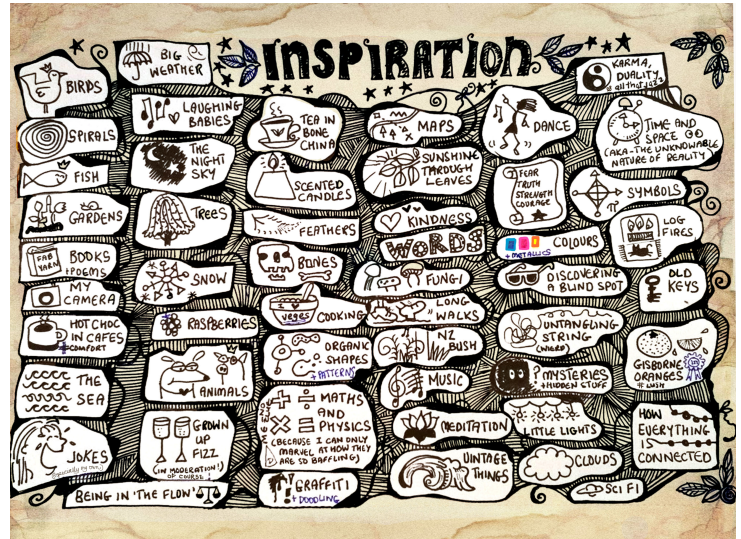 INSPIRATION
BIRDS
SPIRALS
FISH
GARDENS
FAB
YARN
BOOKS
+POEMS
MY
CAMERA
HOT CHOC
IN CAFES
#COMFORT
THE
SEA
JOKES
BEING IN 'THE FLOW'
BIG
WEATHER
LAUGHING
BABIES
THE
NIGHT
SKY
TREES
SNOW
RASPBERRIES
ANIMALS
GROWN
UP
FIZZ
(IN MODERATION!)
OF COURSE!
TEA IN
BONE
CHINA
SCENTED
CANDLES
FEATHERS
BONES
veges
COOKING
ORGANIC
SHAPES
+ PATTERNS
MATHS
AND
PHYSICS
(BECAUSE I CAN ONLY
MARVEL AT HOW THEY
ARE SO BAFFLING)
GRAFFITI
+ DOODLING
MAPS
SUNSHINE
THROUGH
LEAVES
KINDNESS
WORDS
FUNGI
LONG
WALKS
NZ
BUSH
MUSIC
MEDITATION
VINTAGE
THINGS
DANCE
FEAR
TRUTH
STRENGTH
COURAGE
COLOURS
+ METALLICS
DISCOVERING
A BLIND SPOT
UNTANGLING
STRING
?MYSTERIES
+HIDDEN STUFF
LITTLE LIGHTS
CLOUDS
SCI FI
KARMA,
DUALITY
& all that jazz
TIME AND
SPACE
(AKA - THE UNKNOWABLE
NATURE OF REALITY)
SYMBOLS
π
LOG
FIRES
OLD
KEYS
GISBORNE
ORANGES
# LUSH
HOW
EVERYTHING
IS
CONNECTED